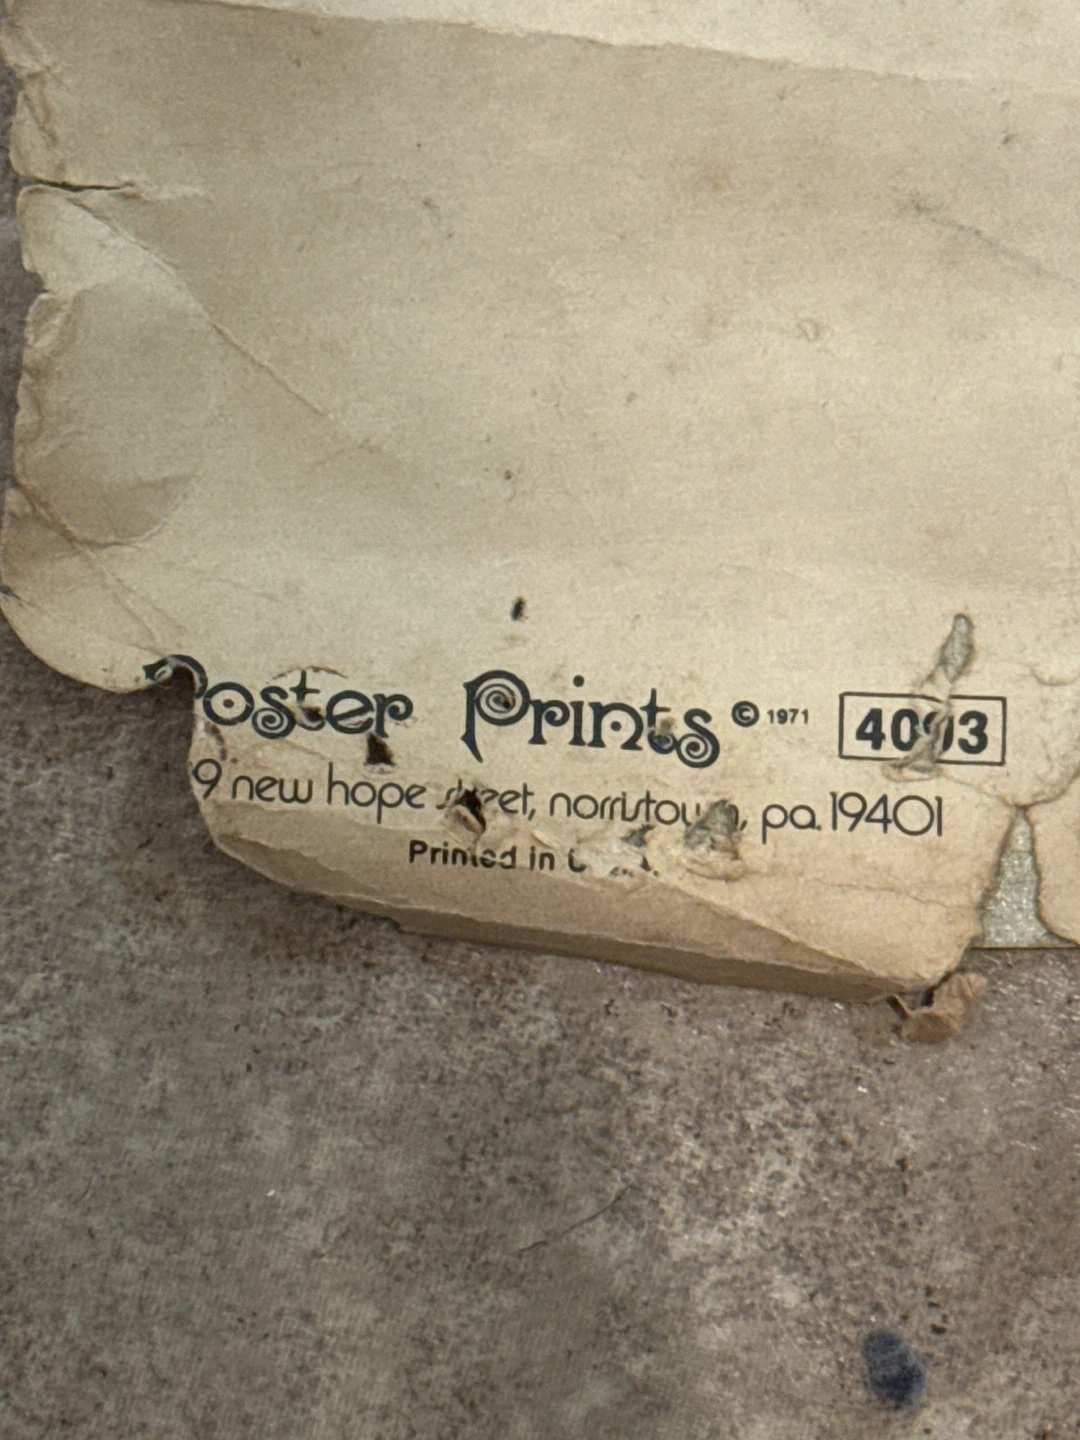 Poster Prints © 1971 4093
9 new hope street, norristown, pa. 19401
Printed in U.S.A.